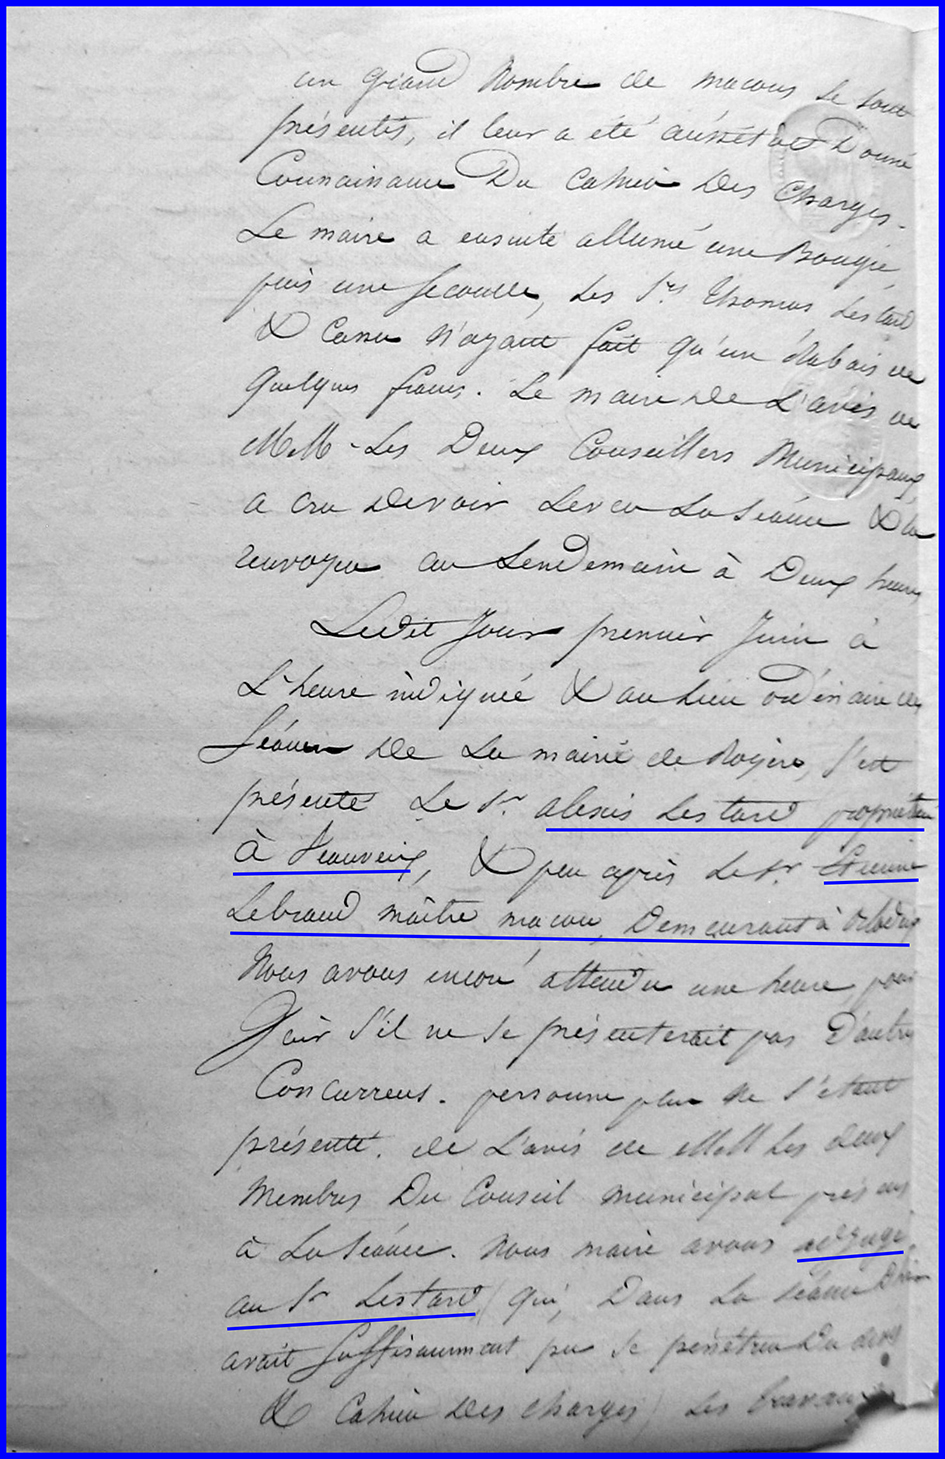 un grand Nombre de macons se sont
présentés, il leur a été aussitôt Donné
Connaissance Du Cahier Des Charges.
Le maire a ensuite allumé une Bougie
puis une seconde, Les Srs Thomas Lestard
& Canu N'ayant fait qu'un Rabais de
quelques francs. Le maire de L'avis de
M.M. Les Deux Conseillers Municipaux
a cru Devoir Lever La Séance & la
renvoyer au Lendemain à Deux heures
Ledit Jour premier Juin à
L'heure indiquée & au Lieu ordinaire des
Séances de La mairie de, S'est
présenté Le Sr alexis Lestard propriétaire
à, & peu après Le Sr Etienne
Lebrand maître macon, Demeurant à
Nous avons encore attendu une heure, pour
Voir S'il ne Se présenterait pas D'autres
Concurrens. personne plus Ne S'étant
présenté. de L'avis de M.M Les deux
Membres Du Conseil municipal présens
à La Séance. Nous maire avons adjugé
au Sr Lestard (qui, Dans La séance D'hier
avait Suffisamment pu Se pénétrer Du devis
& Cahier Des charges) Les travaux